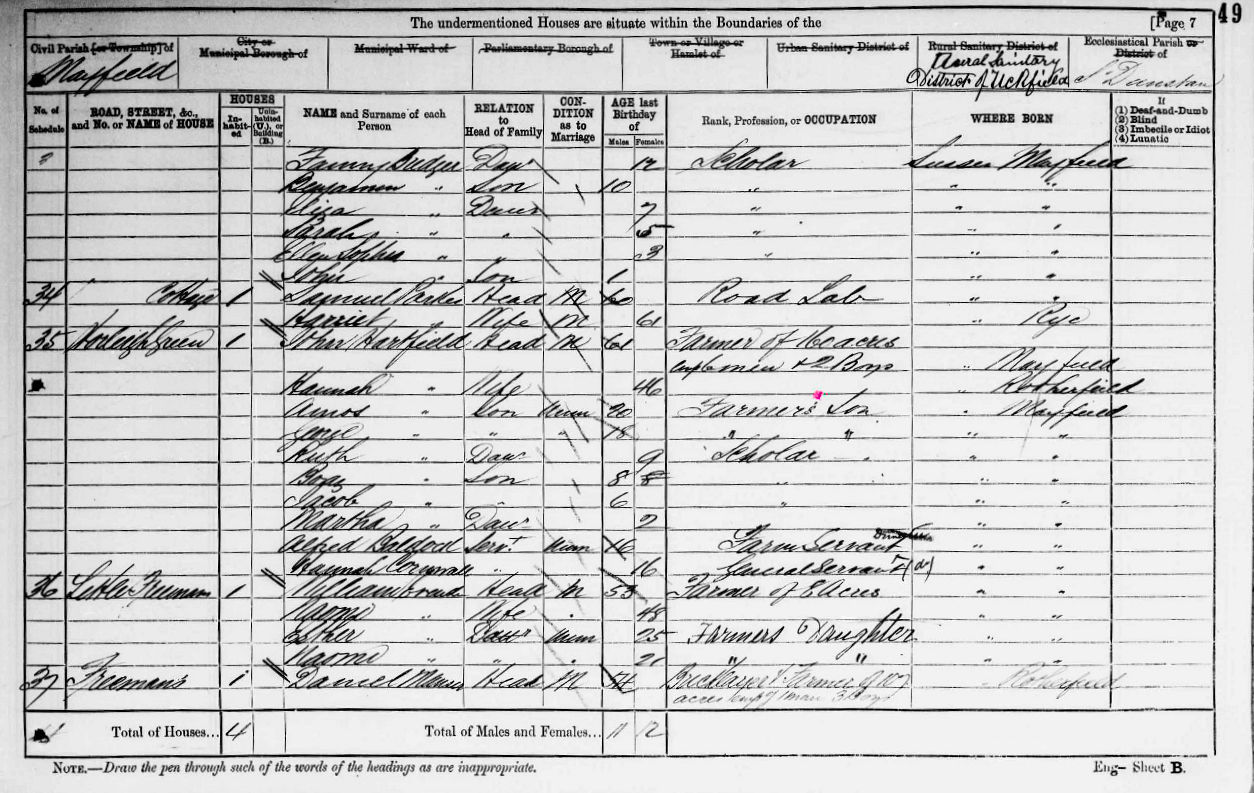 49
The undermentioned Houses are situate within the Boundaries of the [Page 7
Civil Parish [or Township] of City or Municipal Borough of Municipal Ward of Parliamentary Borough of Town or Village or Hamlet of Urban Sanitary District of Rural Sanitary District of Ecclesiastical Parish or District of
Mayfield Rural Sanitary District of Uckfield St Dunstan
No. of Schedule ROAD, STREET, &c., and No. or NAME of HOUSE HOUSES In-habit-ed Unin-habited (U.), or Building (B.) NAME and Surname of each Person RELATION to Head of Family CON-DITION as to Marriage AGE last Birthday of Males Females Rank, Profession, or OCCUPATION WHERE BORN If (1) Deaf-and-Dumb (2) Blind (3) Imbecile or Idiot (4) Lunatic
Fanny Daur 12 Scholar Sussex Mayfield
Benjamin " Son 10 " " "
Eliza " Daur 7 " " "
Sarah " " 5 " " "
Ellen Sophia " " 3 " " "
John " Son 1 " "
34 Cottage 1 Samuel Parker Head M 60 Road Lab " "
Harriet " Wife M 61 " Rye
35 Green 1 John Hartfield Head M 61 Farmer of acres
men & 2 Boys " Mayfield
Hannah " Wife 46 " Rotherfield
Amos " Son Unm 20 Farmer's Son " Mayfield
George " " " 18 " " " "
Ruth " Daur 9 Scholar " "
" Son 8 " " "
Jacob " " 6 " " "
Martha " Daur 2 " "
Alfred Servt Unm 16 Farm Servant " "
Hannah Cornwall " 16 General Servant (do) " "
36 Little Freemans 1 William Head M 53 Farmer of 8 Acres " "
Naomi " Wife " 48 " "
Esther " Daur Unm 25 Farmers Daughter " "
Naomi " " " 21 " " " "
37 Freemans 1 Daniel Head M 54 & Farmer of " Rotherfield
acres 1 man 3 boys
4 Total of Houses... 4 Total of Males and Females... 11 12
NOTE.—Draw the pen through such of the words of the headings as are inappropriate. Eng- Sheet B.